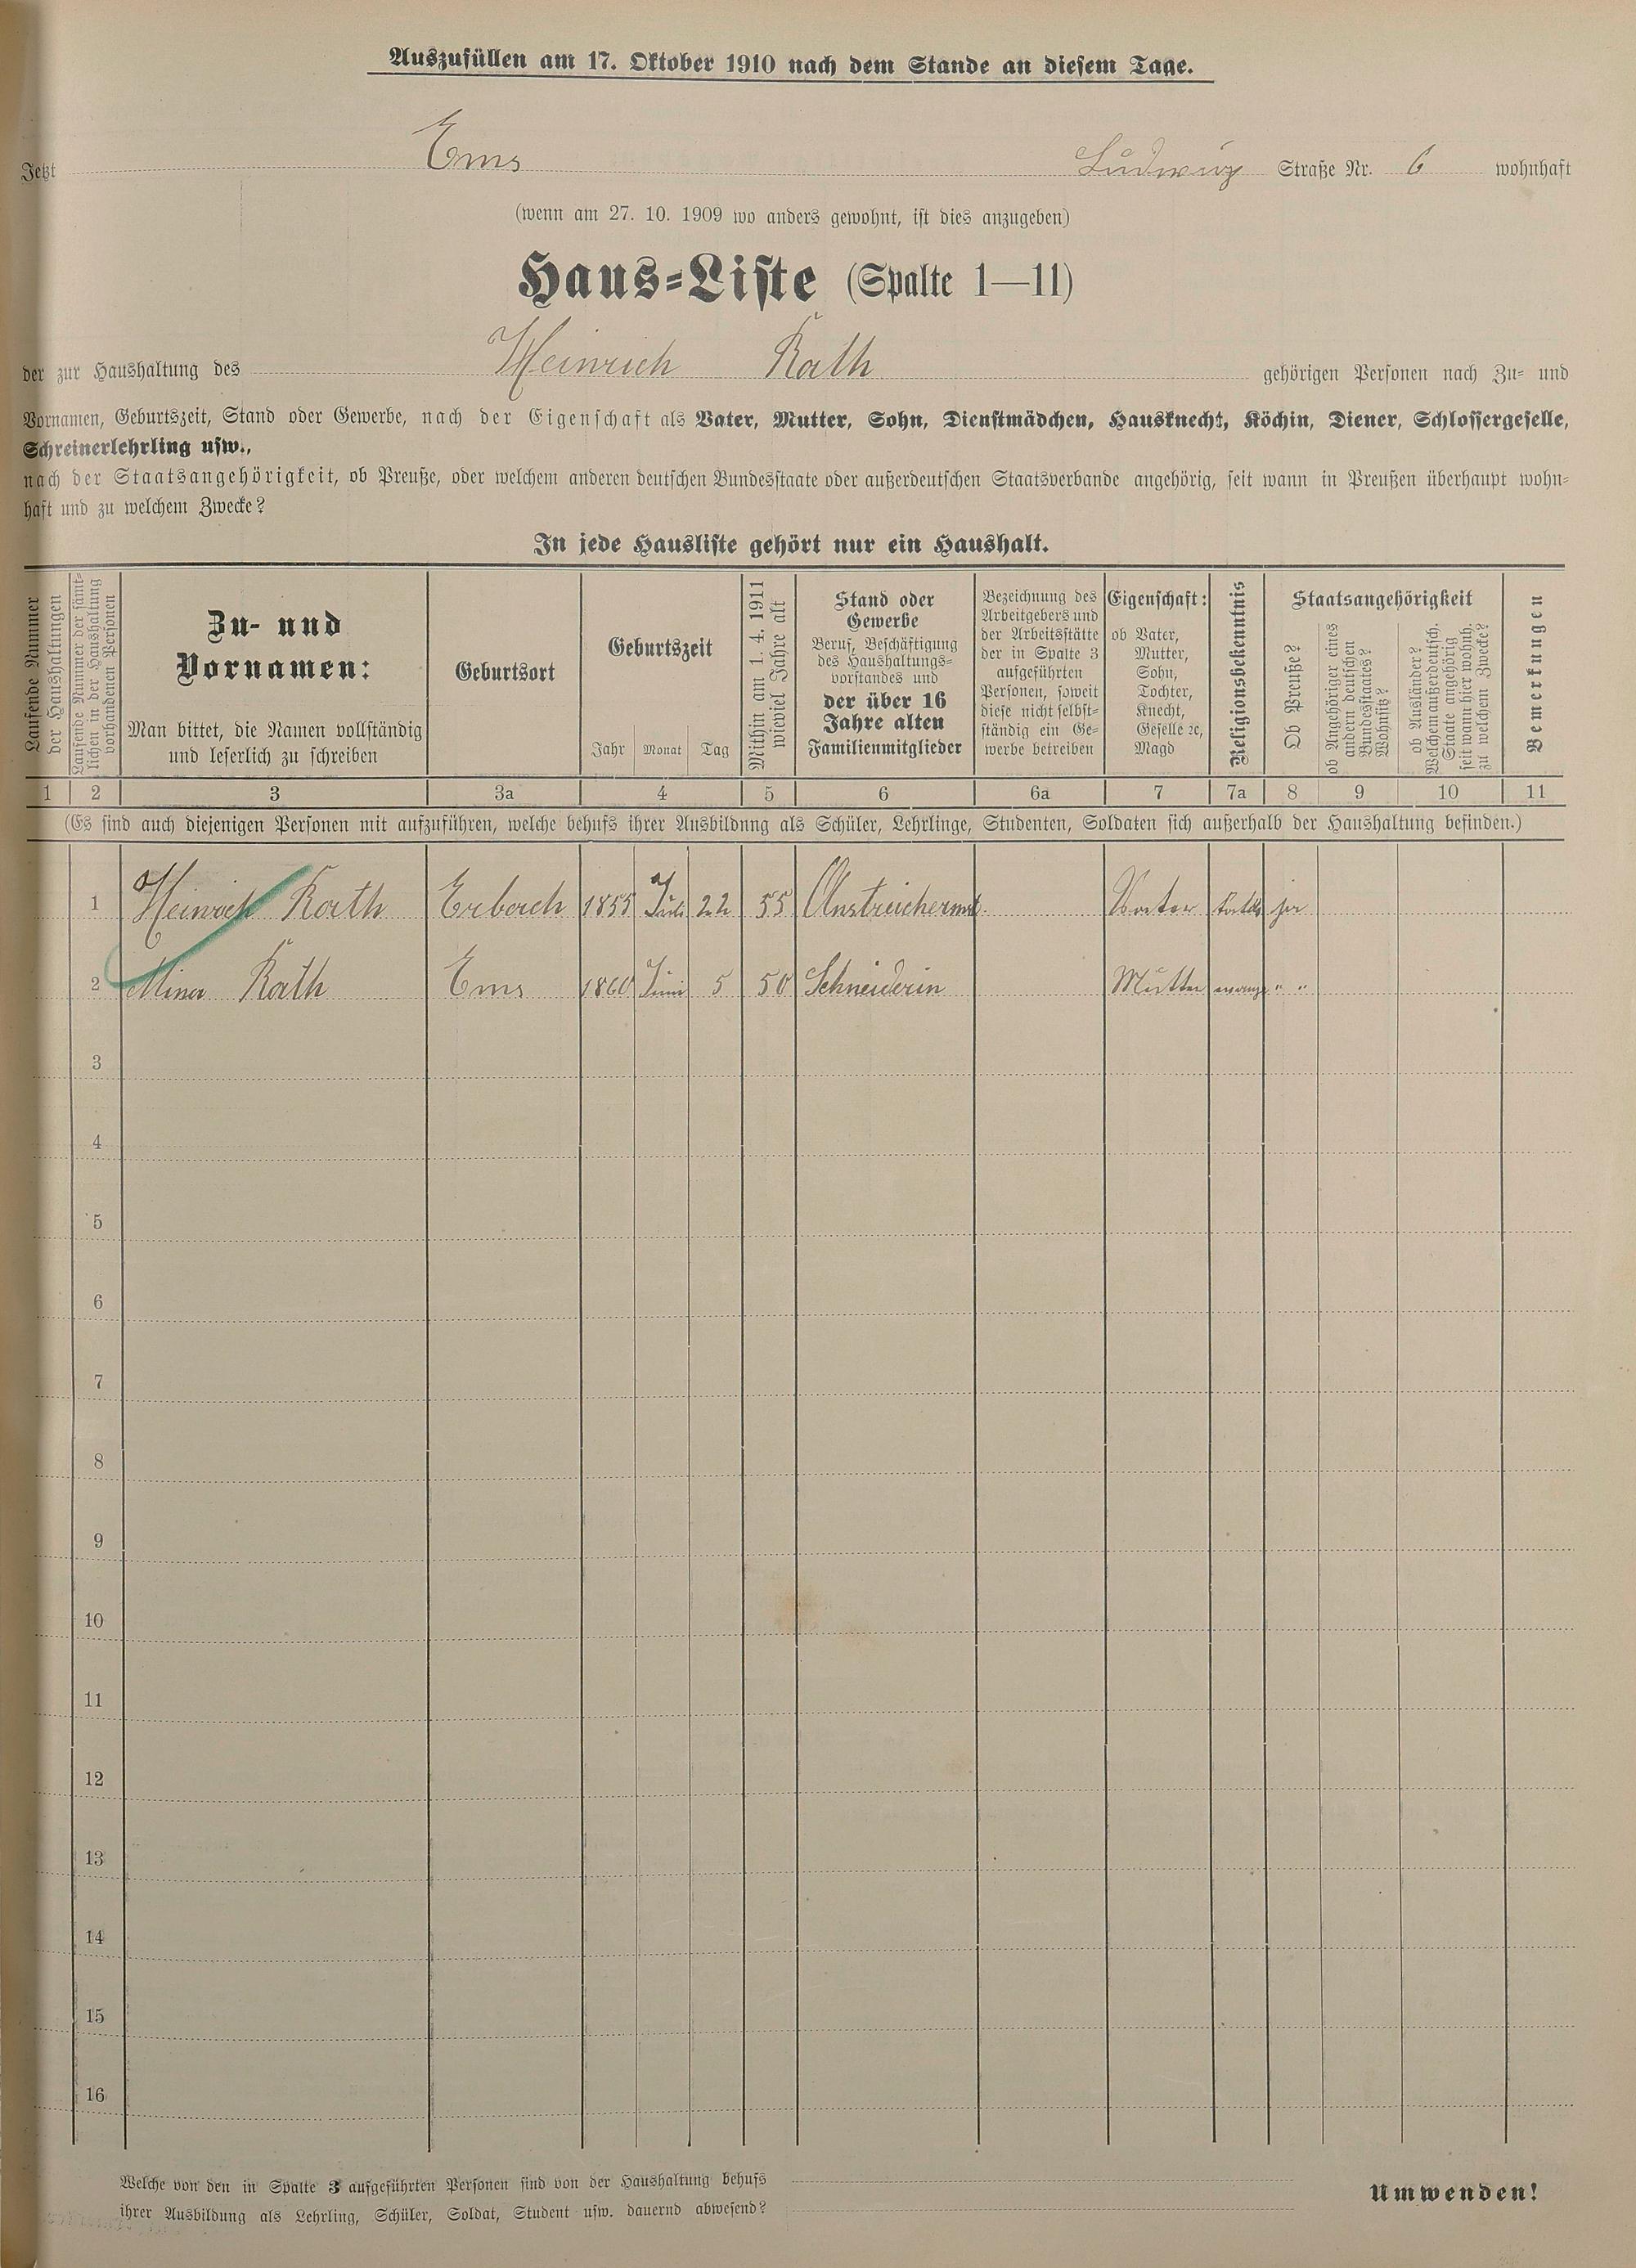 Auszufüllen am 17. Oktober 1910 nach dem Stande an diesem Tage.
Jetzt Ems Ludwig Straße Nr. 6 wohnhaft
(wenn am 27. 10. 1909 wo anders gewohnt, ist dies anzugeben)
Haus-Liste (Spalte 1—11)
der zur Haushaltung des Heinrich Rath gehörigen Personen nach Zu- und
Vornamen, Geburtszeit, Stand oder Gewerbe, nach der Eigenschaft als Vater, Mutter, Sohn, Dienstmädchen, Hausknecht, Köchin, Diener, Schlossergeselle,
Schreinerlehrling usw.,
nach der Staatsangehörigkeit, ob Preuße, oder welchem anderen deutschen Bundesstaate oder außerdeutschen Staatsverbande angehörig, seit wann in Preußen überhaupt wohn-
haft und zu welchem Zwecke?
In jede Hausliste gehört nur ein Haushalt.
Laufende Nummer
der Haushaltungen
Laufende Nummer der sämt-
lichen in der Haushaltung
vorhandenen Personen
Zu- und
Vornamen:
Man bittet, die Namen vollständig
und leserlich zu schreiben
Geburtsort
Geburtszeit
Jahr Monat Tag
Mithin am 1. 4. 1911
wieviel Jahre alt
Stand oder
Gewerbe
Beruf, Beschäftigung
des Haushaltungs-
vorstandes und
der über 16
Jahre alten
Familienmitglieder
Bezeichnung des
Arbeitgebers und
der Arbeitsstätte
der in Spalte 3
aufgeführten
Personen, soweit
diese nicht selbst-
ständig ein Ge-
werbe betreiben
Eigenschaft:
ob Vater,
Mutter,
Sohn,
Tochter,
Knecht,
Geselle ꝛc,
Magd
Religionsbekenntnis
Staatsangehörigkeit
Ob Preuße?
ob Angehöriger eines
andern deutschen
Bundesstaates?
Wohnsitz?
ob Ausländer?
Welchem außerdeutsch.
Staate angehörig
seit wann hier wohnh.
zu welchem Zwecke?
Bemerkungen
1 2 3 3a 4 5 6 6a 7 7a 8 9 10 11
(Es sind auch diejenigen Personen mit aufzuführen, welche behufs ihrer Ausbildung als Schüler, Lehrlinge, Studenten, Soldaten sich außerhalb der Haushaltung befinden.)
1 Heinrich Rath Erbach 1855 Juli 22 55 Anstreicherm Vater kath ja
2 Mina Rath Ems 1860 Juni 5 50 Schneiderin Mutter evang " "
3
4
5
6
7
8
9
10
11
12
13
14
15
16
Welche von den in Spalte 3 aufgeführten Personen sind von der Haushaltung behufs
ihrer Ausbildung als Lehrling, Schüler, Soldat, Student usw. dauernd abwesend?
Umwenden!